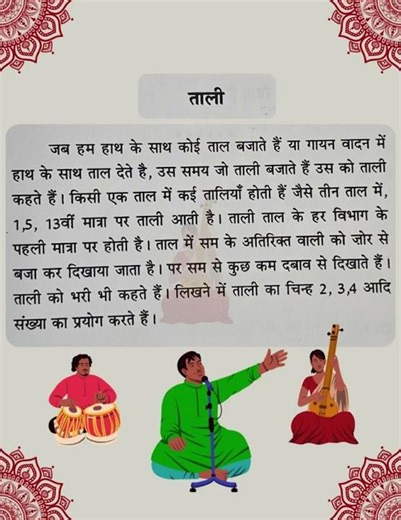 ताली
जब हम हाथ के साथ कोई ताल बजाते हैं या गायन वादन में
हाथ के साथ ताल देते है, उस समय जो ताली बजाते हैं उस को ताली
कहते हैं। किसी एक ताल में कई तालियाँ होती हैं जैसे तीन ताल में,
1,5, 13वीं मात्रा पर ताली आती है। ताली ताल के हर विभाग के
पहली मात्रा पर होती है। ताल में सम के अतिरिक्त वाली को ज़ोर से
बजा कर दिखाया जाता है। पर सम से कुछ कम दबाव से दिखाते हैं।
ताली को भरी भी कहते हैं। लिखने में ताली का चिन्ह 2, 3,4 आदि
संख्या का प्रयोग करते हैं।